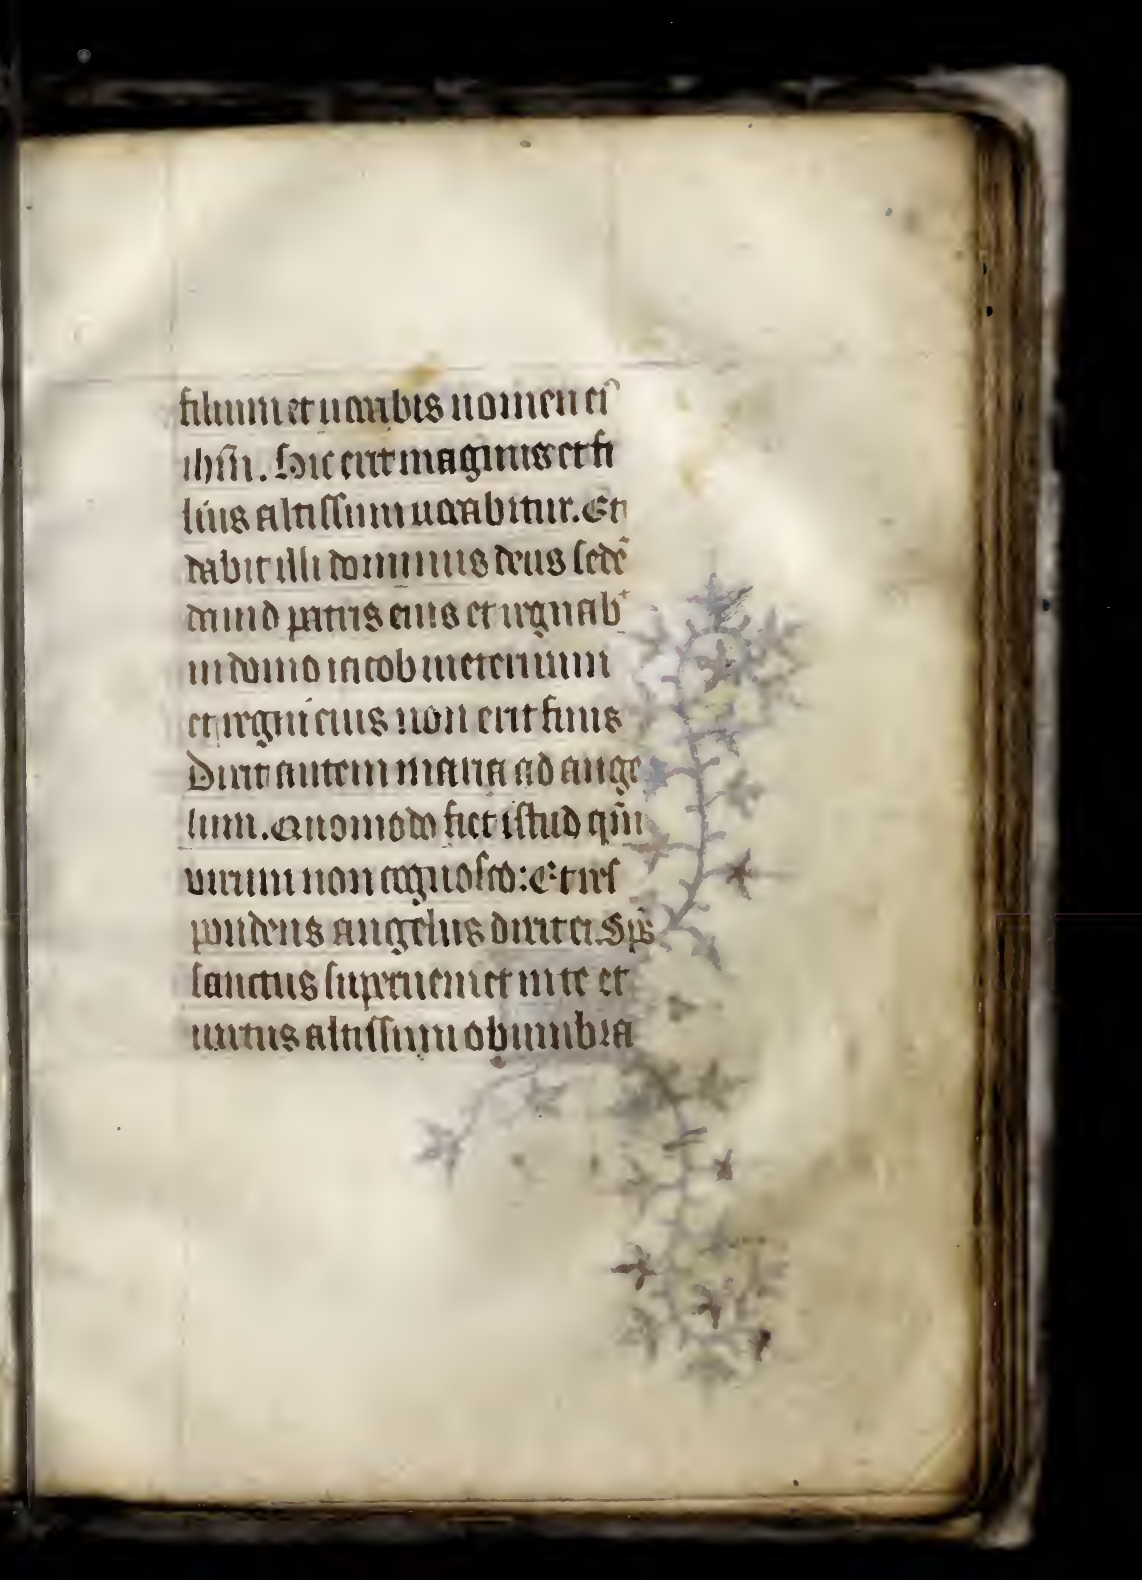 filium et uocabis nomen ei᷒
ihm̃. Hic erit magnus et fi
lius altissimi uocabitur. Et
dabit illi dominus deus sedẽ
dauid patris eius et regnab᷒
in domo iacob in eternum
et regni eius non erit finis
Dixit autem maria ad ange
lum. Quomodo fiet istud qm̃
uirum non cognosco: Et res
pondens angelus dixit ei. Sp̃s
sanctus superueniet in te et
uirtus altissimi obumbra